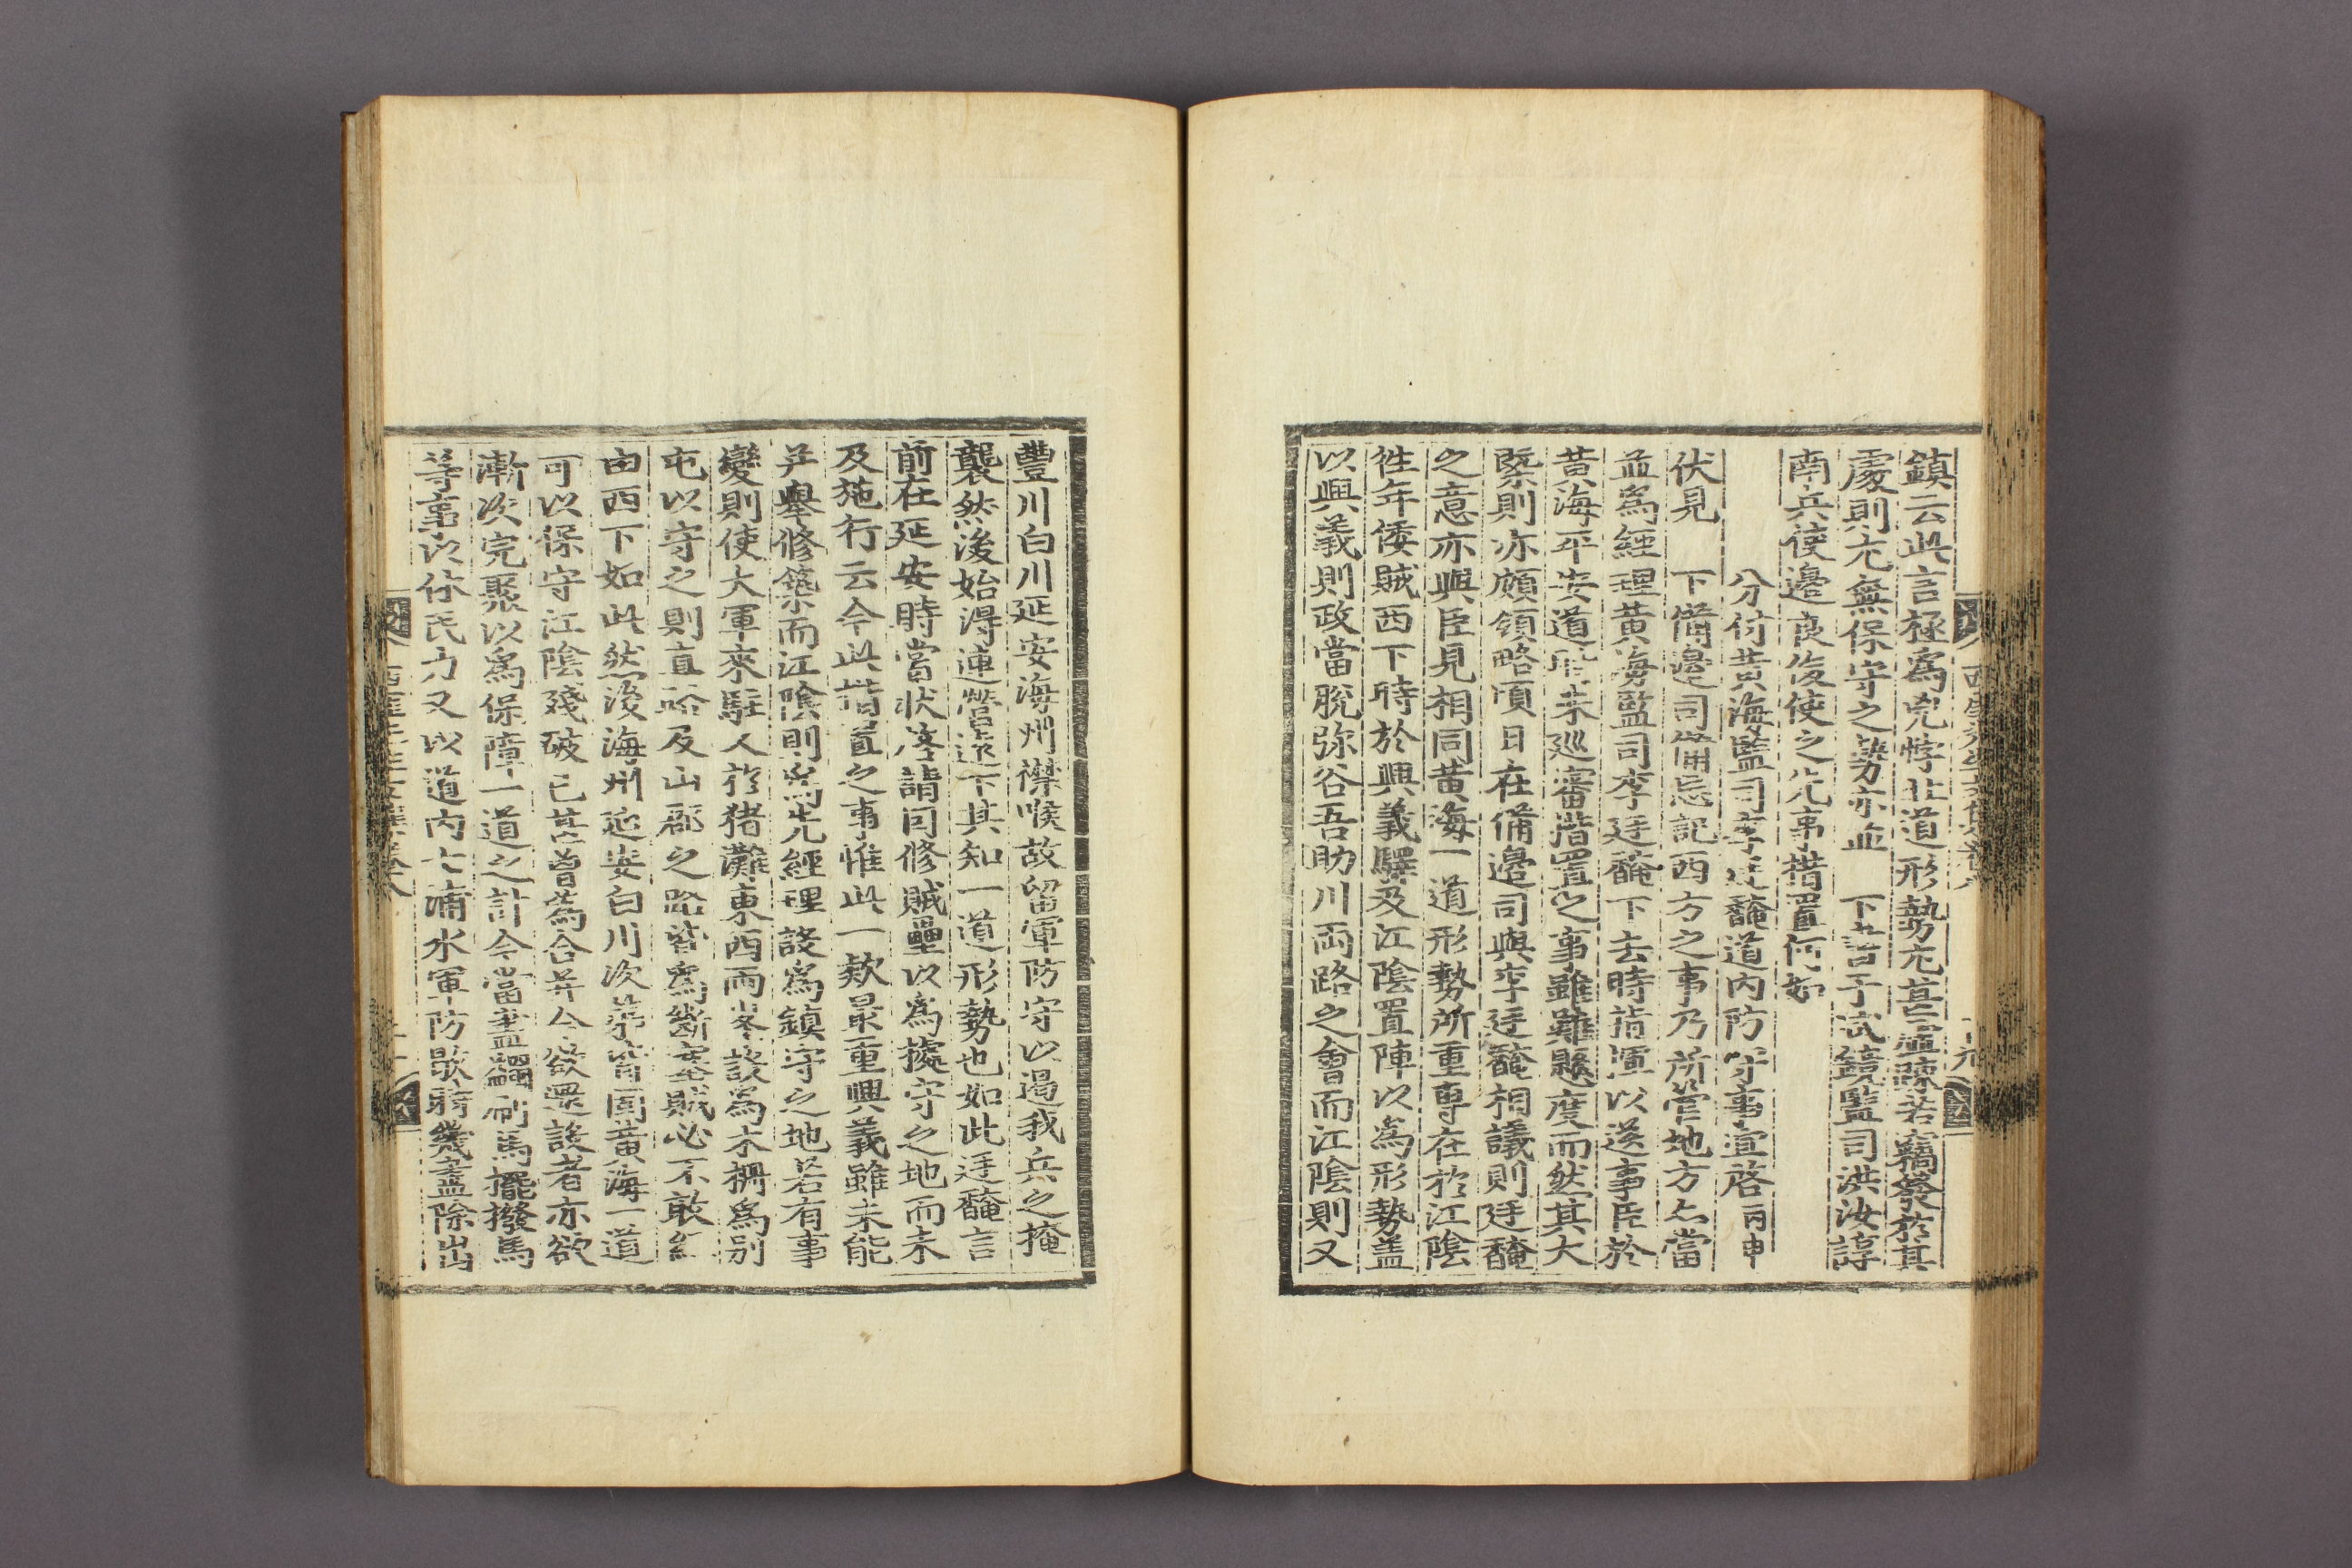 鎮云此言極爲兇悖北道形勢尤甚虛疎若竊發於其
處則尤無保守之勢亦並 下諭于試鏡監司洪汝諄
南兵使邊良俊使之先事措置何如
分付黃海監司李廷馣道內防守事宜啓丙申
伏見 下備邊司備忘記西方之事乃所管地方么當
並爲經理黃海監司李廷馣下去時指渾以送事臣於
黃海平安道時未巡審措置之事雖難懸度而然其大
槩則亦頗領略頃日在備邊司與李廷馣相議則廷馣
之意亦與臣見相同黃海一道形勢所重專在於江陰
徃年倭賊西下時於興義驛及江陰置陣以爲形勢盖
以興義則政當脫弥谷吾助川兩路之會而江陰則又
豐川白川延安海州襟喉故留軍防守以遏我兵之掩
襲然後始得連營遠下其知一道形勢也如此廷馣言
前在延安時嘗狀啓請因修賊壘以爲據守之地而未
及施行云今此措置之事惟此一款最重興義雖未能
并擧修築而江陰則爲先經理設爲鎮守之地若有事
變則使大軍來駐又於猪灘東西兩岸設爲木柵爲別
屯以守之則直路及山郡之路皆爲斷塞賊必不敢紅
由西下如此然後海州延安白川次第皆固黃海一道
可以保守江陰殘破已甚曾爲合并今欲還設者亦欲
漸次完聚以爲保障一道之計今當盡蠲刷馬擺撥馬
等事以休民力又以道內七浦水軍防歇弱幾盡除出